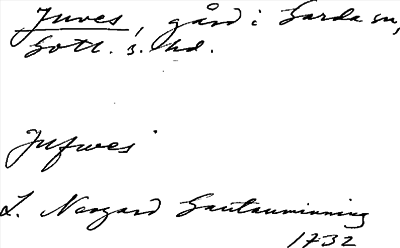 Juves, gård i Garda sn,
Gotl. s. hd.
Jufwes
L. Neogard Gautauminning
1732